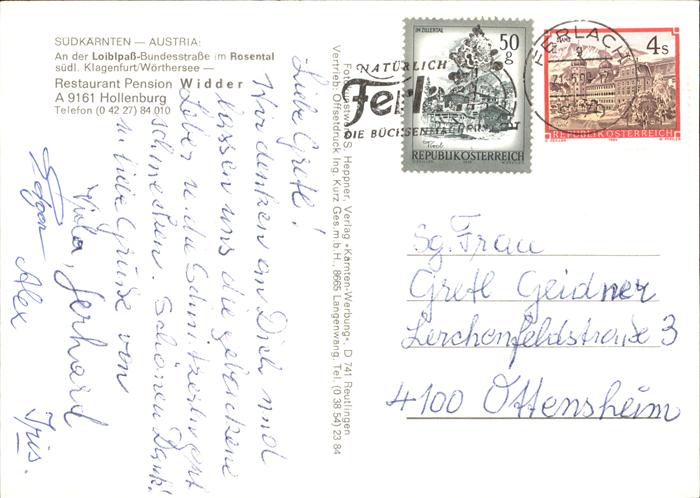 SÜDKÄRNTEN — AUSTRIA:
An der Loiblpaß-Bundesstraße im Rosental
südl. Klagenfurt/Wörthersee —
Restaurant Pension Widder
A 9161 Hollenburg
Telefon (0 42 27) 84 010
Liebe Gretl!
Wir denken an Dich und
lassen uns die gebackene
Leber u. die Schnitzerln gut
schmecken. Schönen Dank!
Liebe Grüße von
Viola, Gerhard
Alex
Iris.
Fotokunstwart S. Heppner, Verlag »Kärnten-Werbung«, D 741 Reutlingen
Vertrieb: Offsetdruck Ing. Kurz Ges.m.b.H., 8665 Langenwang, Tel. (0 38 54) 23 84
NATÜRLICH
Ferl
DIE BÜCHSENMACHER
IM ZILLERTAL
50
g
Tirol
REPUBLIK ÖSTERREICH
FERLACH
4 S
REPUBLIK ÖSTERREICH
Sg. Frau
Gretl Geidner
Lerchenfeldstraße 3
4100 Ottensheim